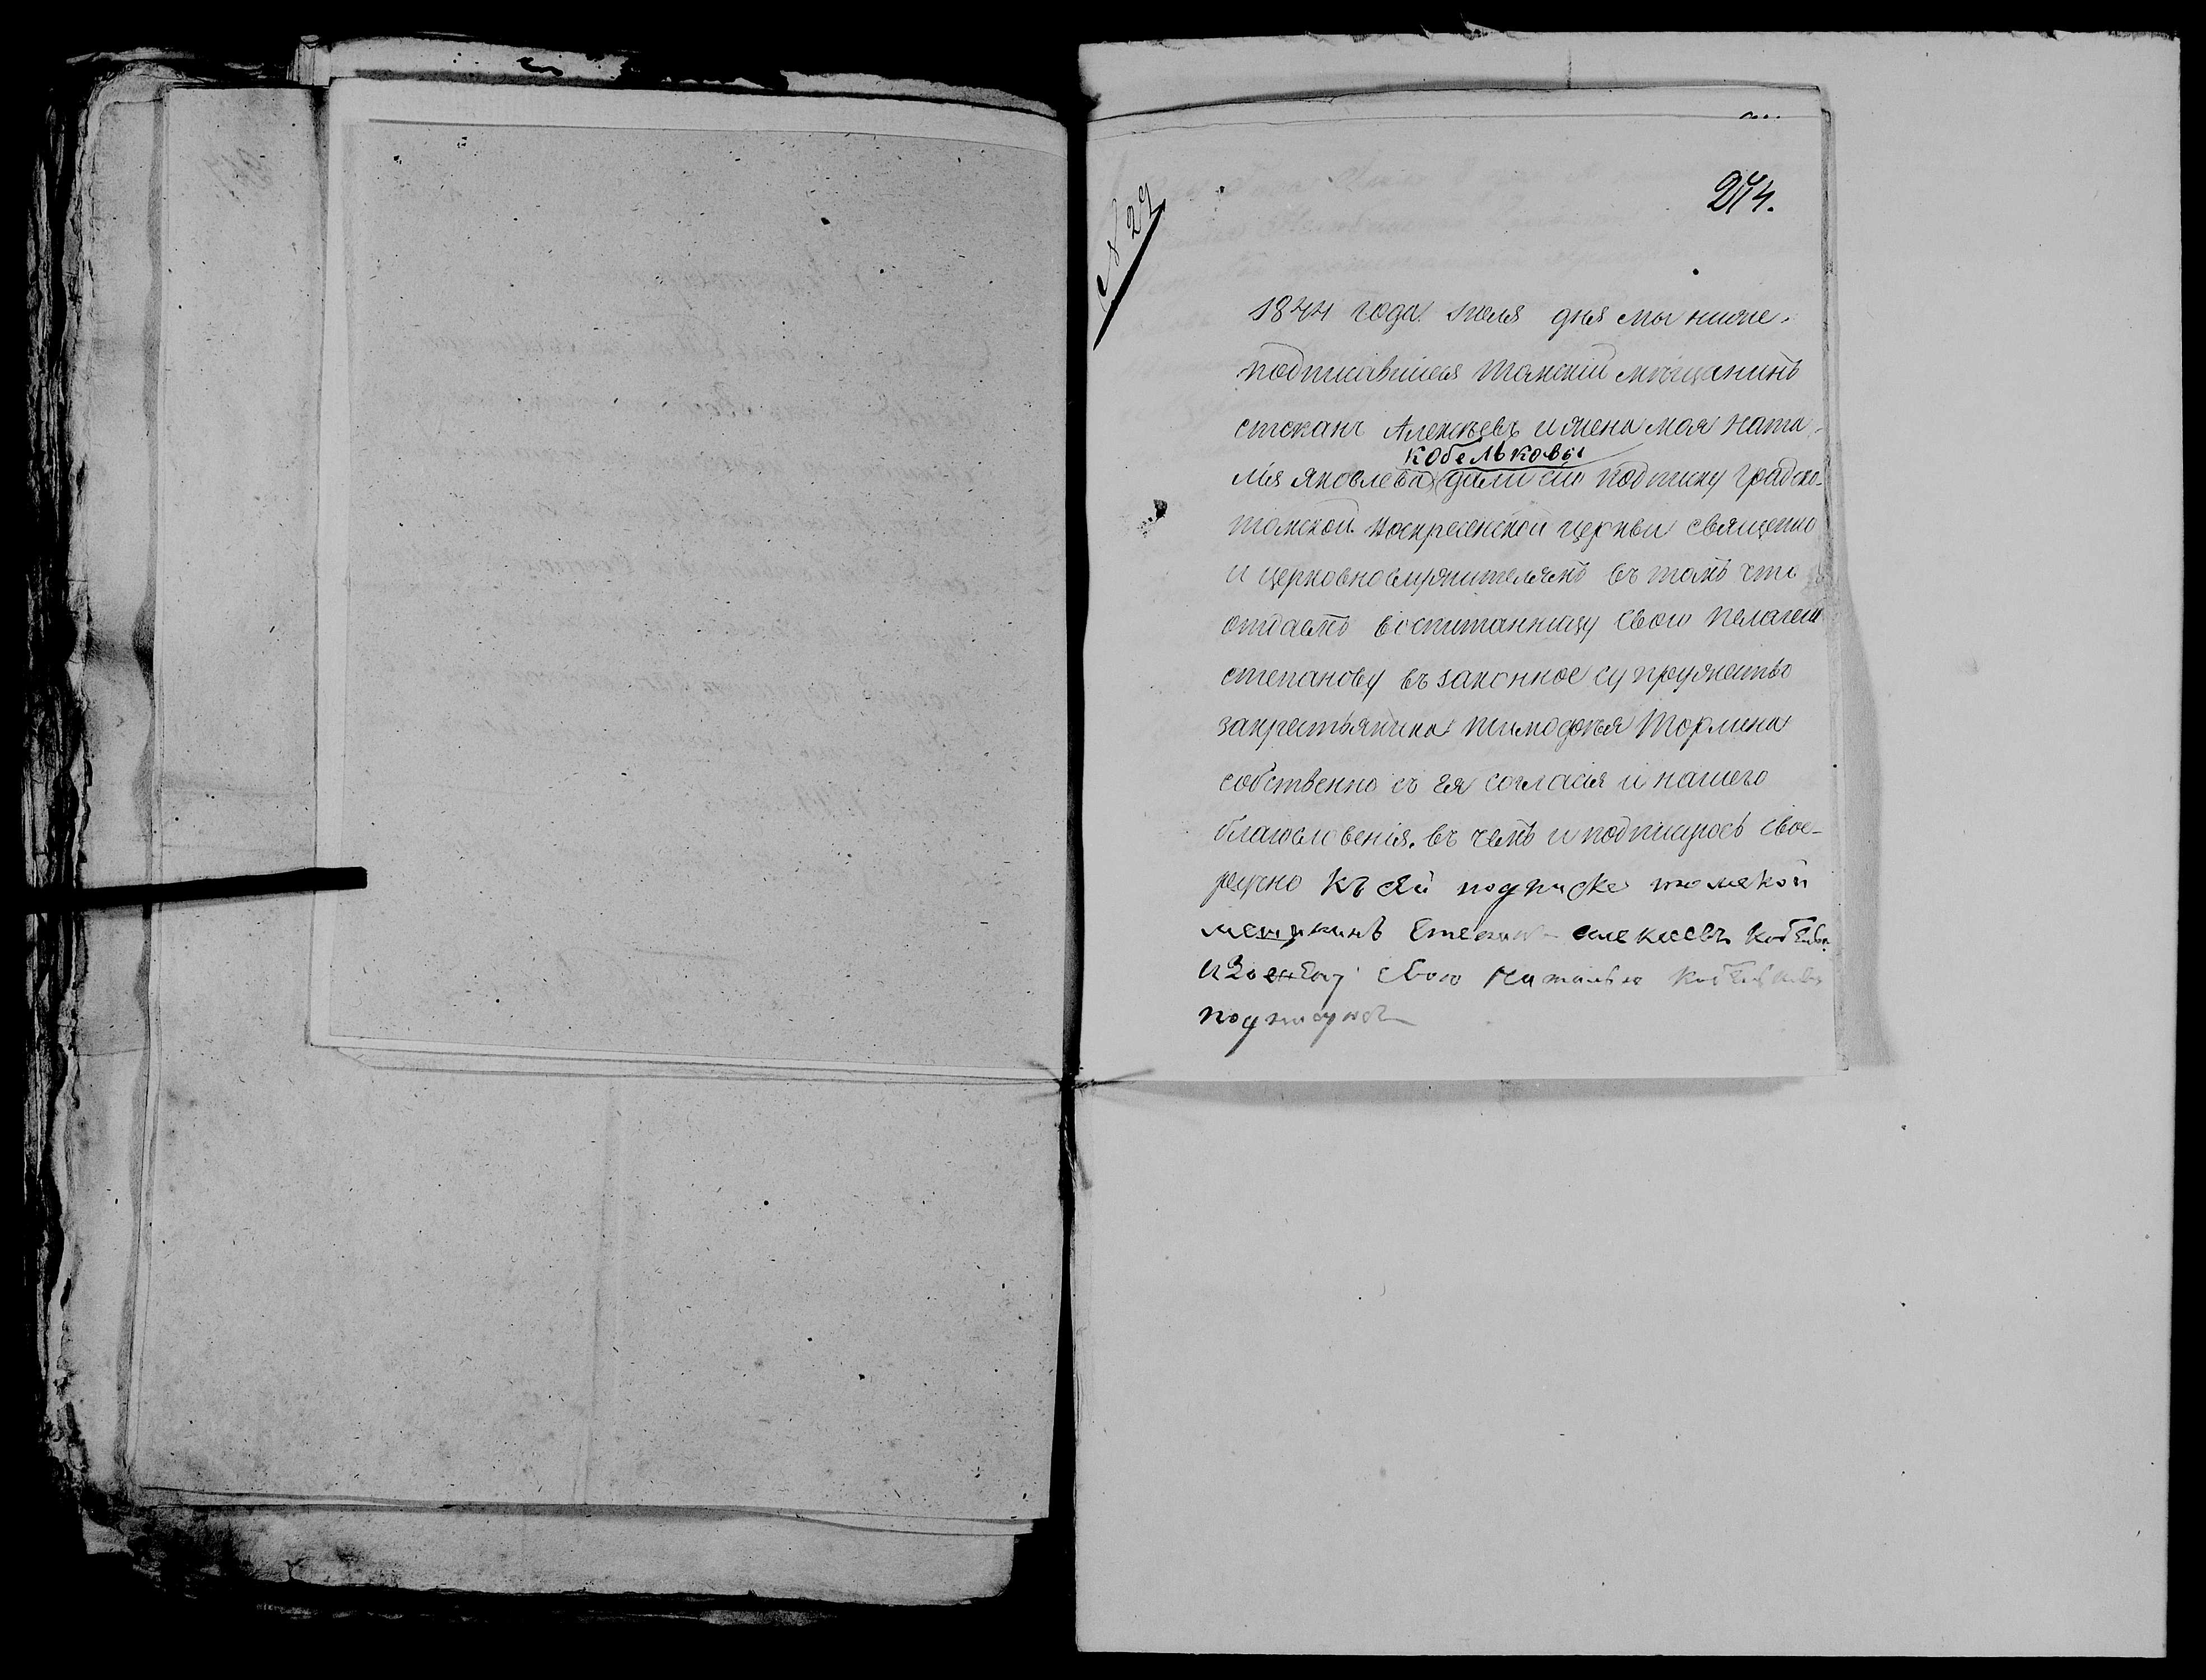 № 29
274.
1844 года июля дня мы ниже-
подписавшиеся томскiй мѣщанинъ
степанъ Алексѣевъ и жена моя ната-
Кобельковы
лiя яковлева дали сiю подписку градско-
томской воскресенской церкви священно
и церковнослужителямъ въ томъ что
отдаемъ воспитанницу свою пелагею
степанову въ законное супружество
закрестьянина тимофѣя Тормина
собственно съ ея согласiя и нашего
благословенiя. въ чемъ и подпишуюсь свое-
ручно Къ сей подписке томской
мещанинъ Степанъ алексеевъ
и за жену свою Наталью
подписуюсь